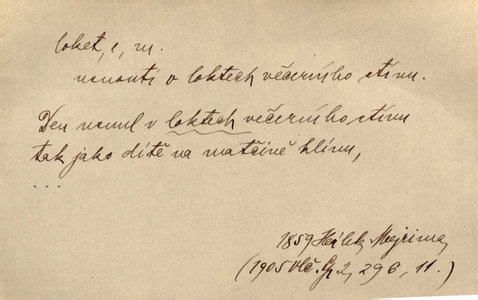 loket, e, m.
usnouti v loktech večerního stínu.
Den usnul v loktech večerního stínu
tak jako dítě na matčině klínu,
...
1859 Hálek, Mejrima,
(1905 Vlč. Sp 2, 296, 11.)